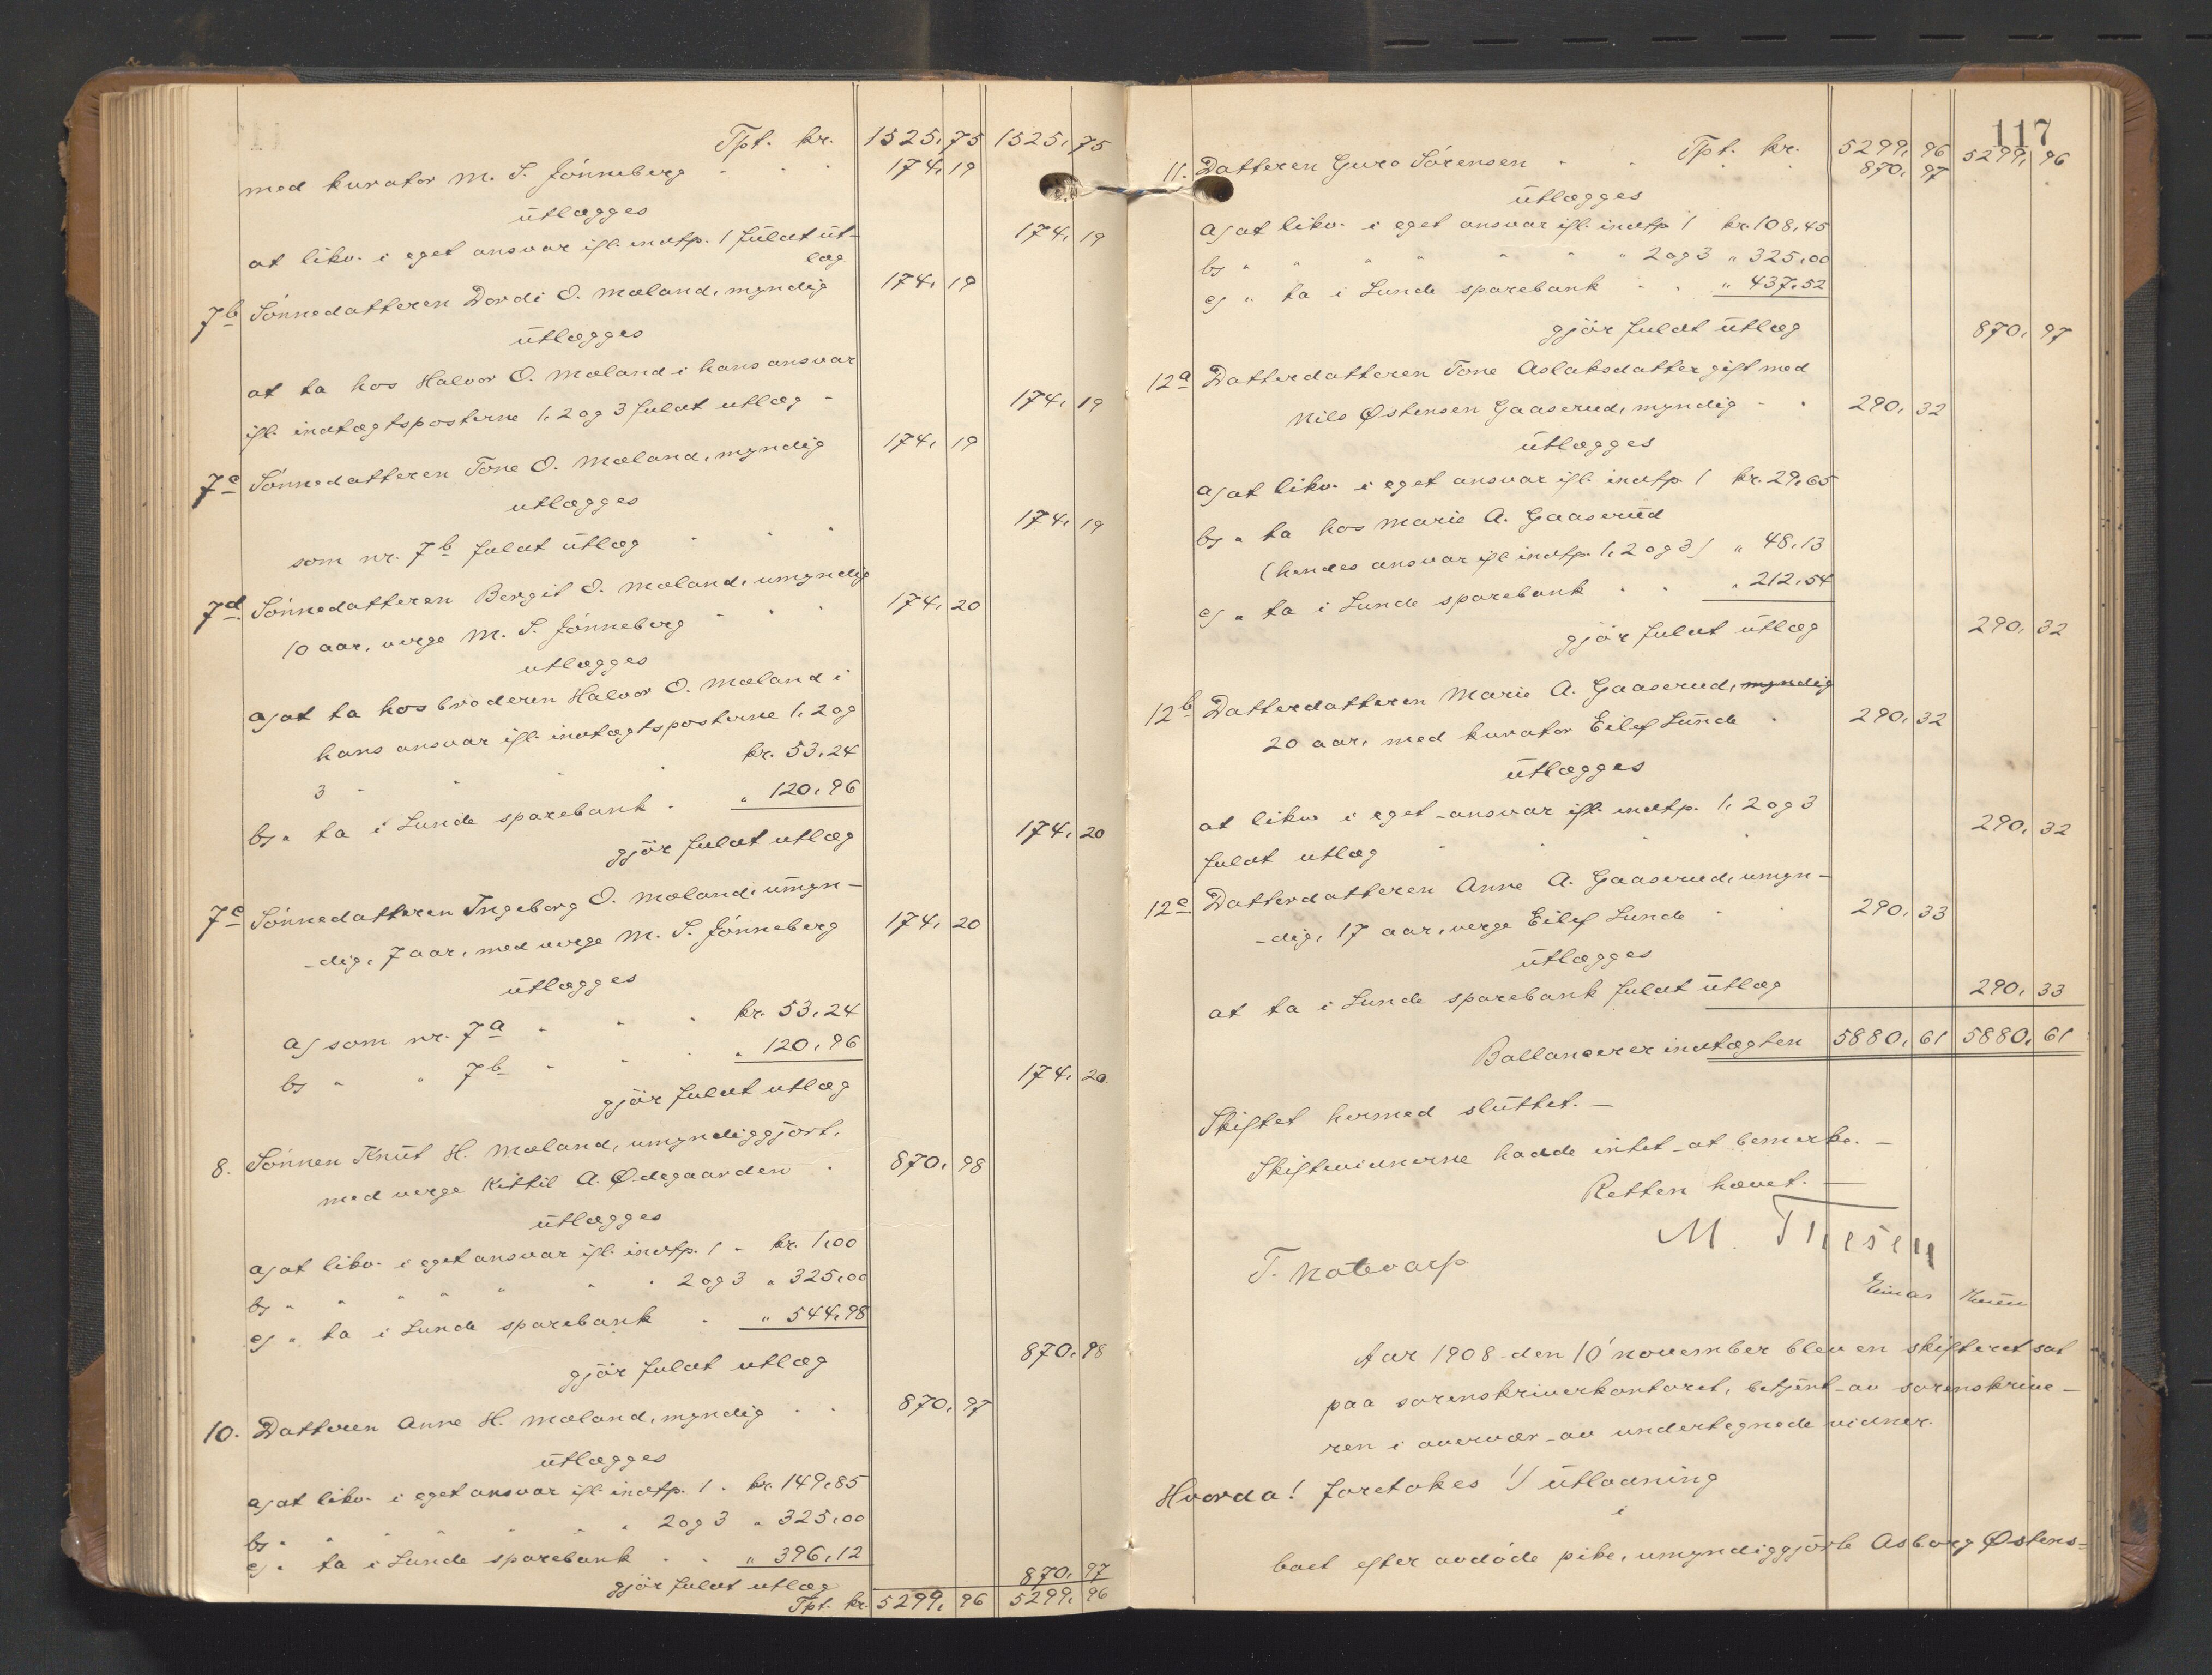 Tpt. kr. 1525,75 1525,75
med kurator M. S. Jönneberg - - - 174,19
utlægges
at likv. i eget ansvar ifl. indtp. 1 fuldt ut- 174,19
læg
7b Sönnedatteren Dordi O. Mæland, myndig 174,19
utlægges
at ta hos Halvor O. Mæland i hans ansvar
ifl. indtægtsposterne 1, 2 og 3 fuldt utlæg - 174,19
7c Sönnedatteren Tone O. Mæland, myndig 174,19
utlægges
som nr. 7b fuldt utlæg - - - 174,19
7d Sönnedatteren Bergit O. Mæland, umyndig
10 aar, verge M. S. Jönneberg - - - 174,20
utlægges
a) at ta hos broderen Halvor O. Mæland i
hans ansvar ifl. indtægtsposterne 1, 2 og
3 - - - kr. 53,24
b) " ta i Lunde sparebank - " 120,96
gjör fuldt utlæg 174,20
7e Sönnedatteren Ingeborg O. Mæland, umyn-
-dig, 7 aar, med verge M. S. Jönneberg 174,20
utlægges
a) som nr. 7a - - - kr. 53,24
b) " " 7b - - - " 120,96
gjör fuldt utlæg 174,20
8. Sönnen Knut H. Mæland, umyndiggjort,
med verge Kittil A. Ødegaarden - 870,98
utlægges
a) at likv. i eget ansvar ifl. indtp. 1 - kr. 1,00
b) " " " " " " " 2 og 3 " 325,00
c) " ta i Lunde sparebank - " 544,98
gjör fuldt utlæg 870,98
10. Datteren Anne H. Mæland, myndig - - 870,97
utlægges
a) at likv. i eget ansvar ifl. indtp. 1 - kr. 149,85
b) " " " " " " 2 og 3 " 325,00
c) " ta i Lunde sparebank - - " 396,12
gjör fuldt utlæg 870,97
Tpt. kr. 5299,96 5299,96
117
Tpt. kr. 5299,96 5299,96
11. Datteren Guro Sörensen - - - - 870,97
utlægges
a) at likv. i eget ansvar ifl. indtp. 1 kr. 108,45
b) " " " " " " " 2 og 3 " 325,00
c) " ta i Lunde sparebank - - " 437,52
gjör fuldt utlæg 870,97
12a Datterdatteren Tone Aslaksdatter gift med
Nils Østensen Gaaserud, myndig - - 290,32
utlægges
a) at likv. i eget ansvar ifl. indtp. 1 kr. 29,65
b) " ta hos Marie A. Gaaserud
(hendes ansvar ifl. indtp. 1, 2 og 3) " 48,13
c) " ta i Lunde sparebank - - " 212,54
gjör fuldt utlæg 290,32
12b Datterdatteren Marie A. Gaaserud, myndig
20 aar, med kurator Eilef Lunde - 290,32
utlægges
at likv. i eget ansvar ifl. indtp. 1, 2 og 3
fuldt utlæg - - - - 290,32
12c Datterdatteren Anne A. Gaaserud, umyn-
-dig, 17 aar, verge Eilef Lunde - - 290,33
utlægges
at ta i Lunde sparebank fuldt utlæg 290,33
Ballancerer indtægten 5880,61 5880,61
Skiftet hermed sluttet. -
Skiftevidnerne hadde intet at bemerke. -
Retten hævet. -
M. Thesen
T. Natvarp
Einar
Aar 1908 den 10' november blev en skifteret sat
paa sorenskriverkontoret, betjent av sorenskrive-
ren i overvær av undertegnede vidner.
Hvorda! foretokes 1/ utlodning
i
boet efter avdöde pike, umyndiggjörte Asborg Østens-